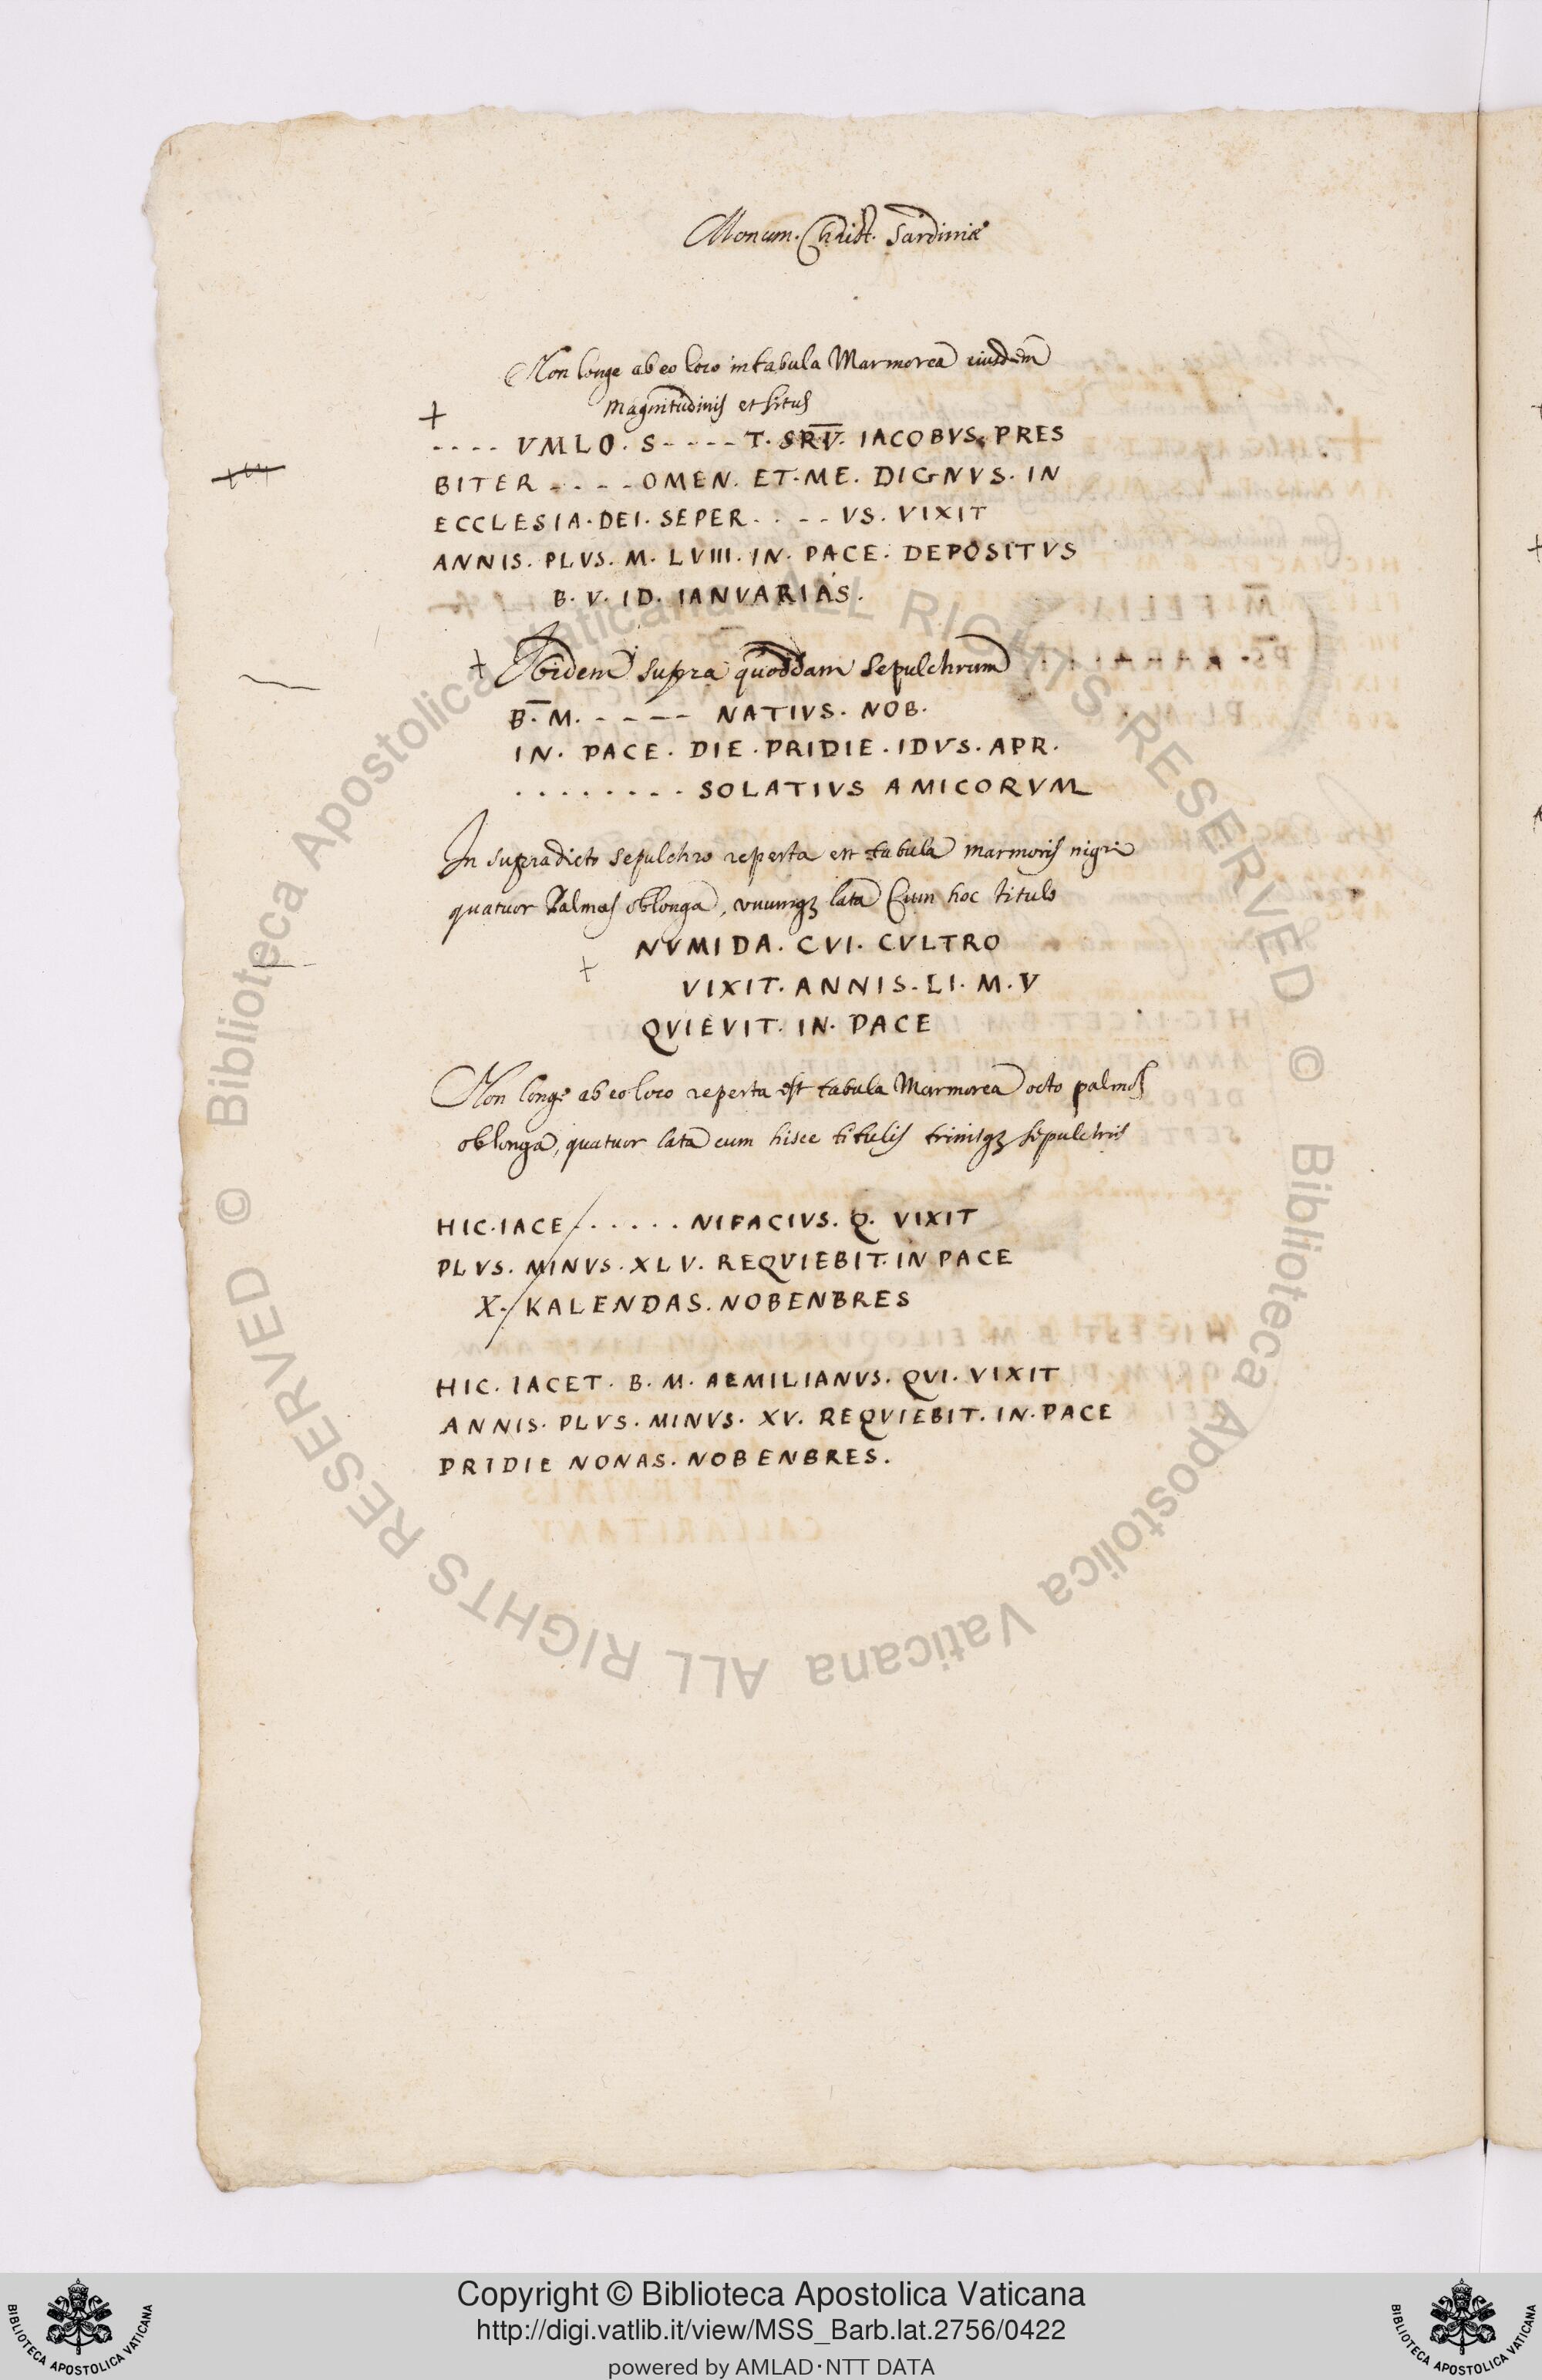 Monum. Christ. Sardiniæ
Non longe ab eo loco in tabula Marmorea eiusdem
magnitudinis et situs
+
.... VMLO. S - - - - T. SRV̅. IACOBVS. PRES
BITER - . - - OMEN. ET. ME. DIGNVS. IN
ECCLESIA. DEI. SEPER. . - - VS. VIXIT
ANNIS. PLVS. M. LVIII. IN. PACE. DEPOSITVS
B. V. ID. IANVARIAS.
+ Ibidem supra quoddam sepulchrum
B̅. M. - - - - - NATIVS. NOB.
IN. PACE. DIE. PRIDIE. IDVS. APR.
. . . . . . . . SOLATIVS AMICORVM
In supradicto sepulchro reperta est tabula marmoris nigri
quatuor Palmas oblonga, vnumqꝫ lata Cum hoc titulo
NVMIDA. CVI. CVLTRO
+
VIXIT. ANNIS. LI. M. V
QVIEVIT. IN. PACE
Non longe ab eo loco reperta est tabula Marmorea octo palmos
oblonga, quatuor lata cum hisce titulis trinisqꝫ sepulchris
HIC. IACE . . . . . . NIFACIVS. Q. VIXIT
PLVS. MINVS. XLV. REQVIEBIT. IN PACE
X. KALENDAS. NOBENBRES
HIC. IACET. B. M. AEMILIANVS. QVI. VIXIT
ANNIS. PLVS. MINVS. XV. REQVIEBIT. IN. PACE
PRIDIE NONAS. NOBENBRES.
© Biblioteca Apostolica Vaticana ALL RIGHTS RESERVED
© Biblioteca Apostolica Vaticana ALL RIGHTS RESERVED
Copyright © Biblioteca Apostolica Vaticana
http://digi.vatlib.it/view/MSS_Barb.lat.2756/0422
powered by AMLAD·NTT DATA
BIBLIOTECA APOSTOLICA VATICANA
BIBLIOTECA APOSTOLICA VATICANA